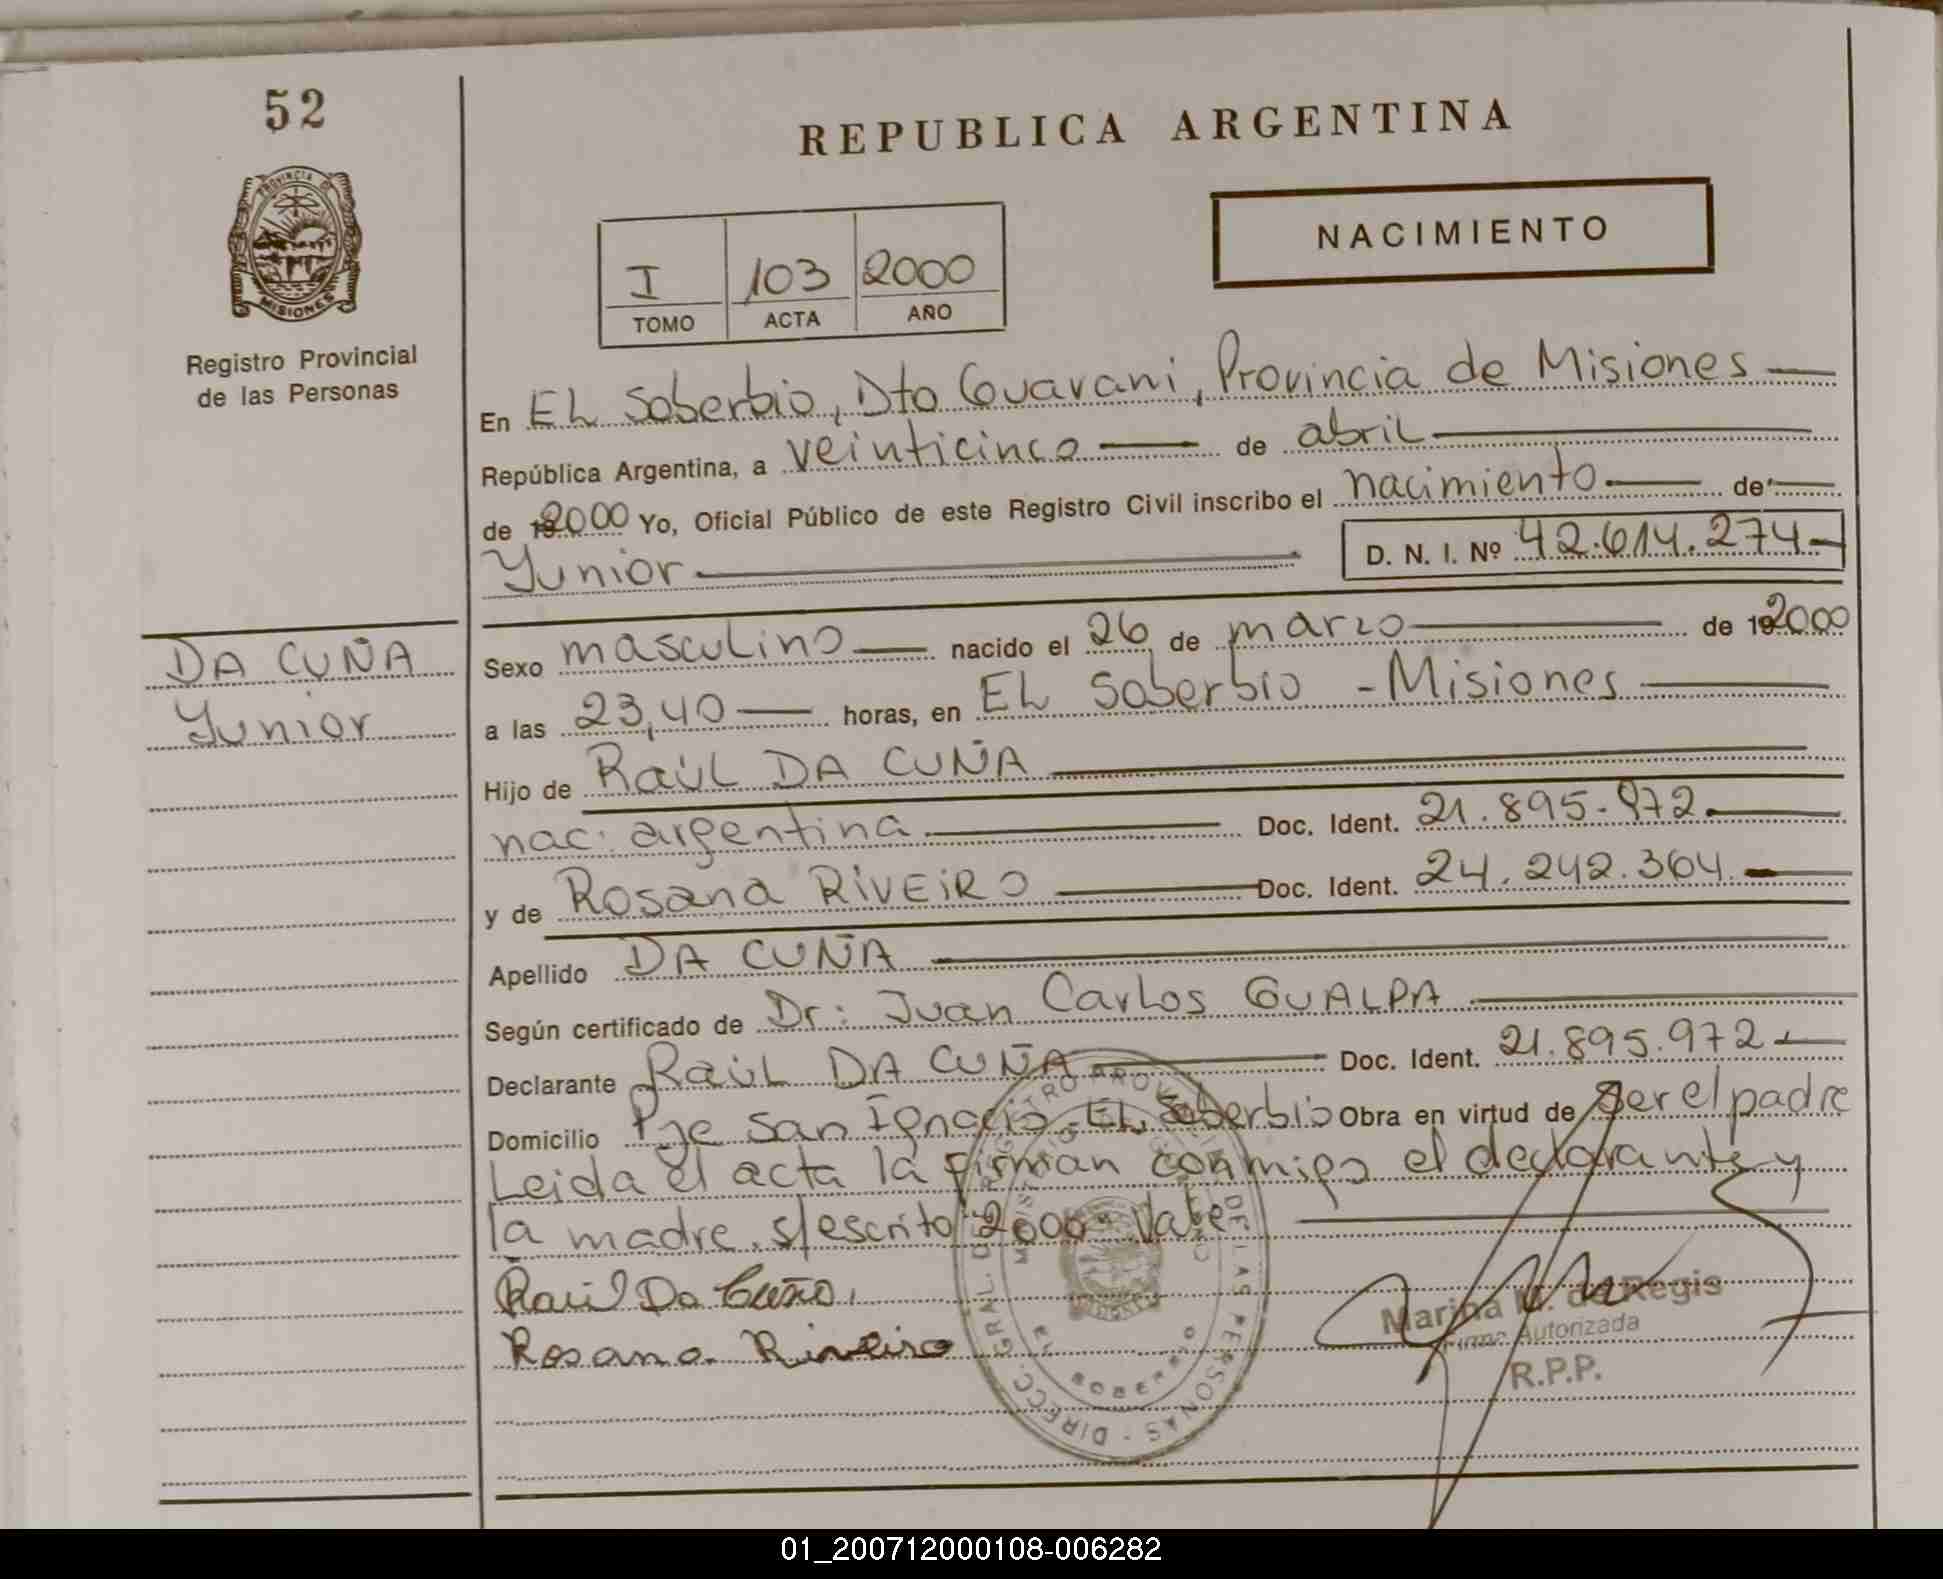 52
PROVINCIA DE
MISIONES
Registro Provincial
de las Personas
REPUBLICA ARGENTINA
NACIMIENTO
I 103 2000
TOMO ACTA AÑO
En EL Soberbio, Dto Guarani, Provincia de Misiones
República Argentina, a veinticinco de abril
de 2000 Yo, Oficial Público de este Registro Civil inscribo el nacimiento de
Yunior D. N. I. Nº 42.614.274
DA CUÑA
Yunior
Sexo masculino nacido el 26 de marzo de 192000
a las 23,40 horas, en EL Soberbio - Misiones
Hijo de Raúl DA CUÑA
nac: argentina Doc. Ident. 21.895.972
y de Rosana RIVEIRO Doc. Ident. 24.242.364
Apellido DA CUÑA
Según certificado de Dr: Juan Carlos GUALPA
Declarante Raúl DA CUÑA Doc. Ident. 21.895.972
Domicilio Pje San Ignacio - EL Soberbio Obra en virtud de Ser el padre
Leida el acta la firman conmigo el declarante y
la madre. s/escrito "2000" Vale
Raúl Da Cuña
Rosana Riveiro
Marina M. de Regis
Firma Autorizada
R.P.P.
DIRECC. GRAL. DEL REGISTRO PROVINCIAL DE LAS PERSONAS
01_200712000108-006282